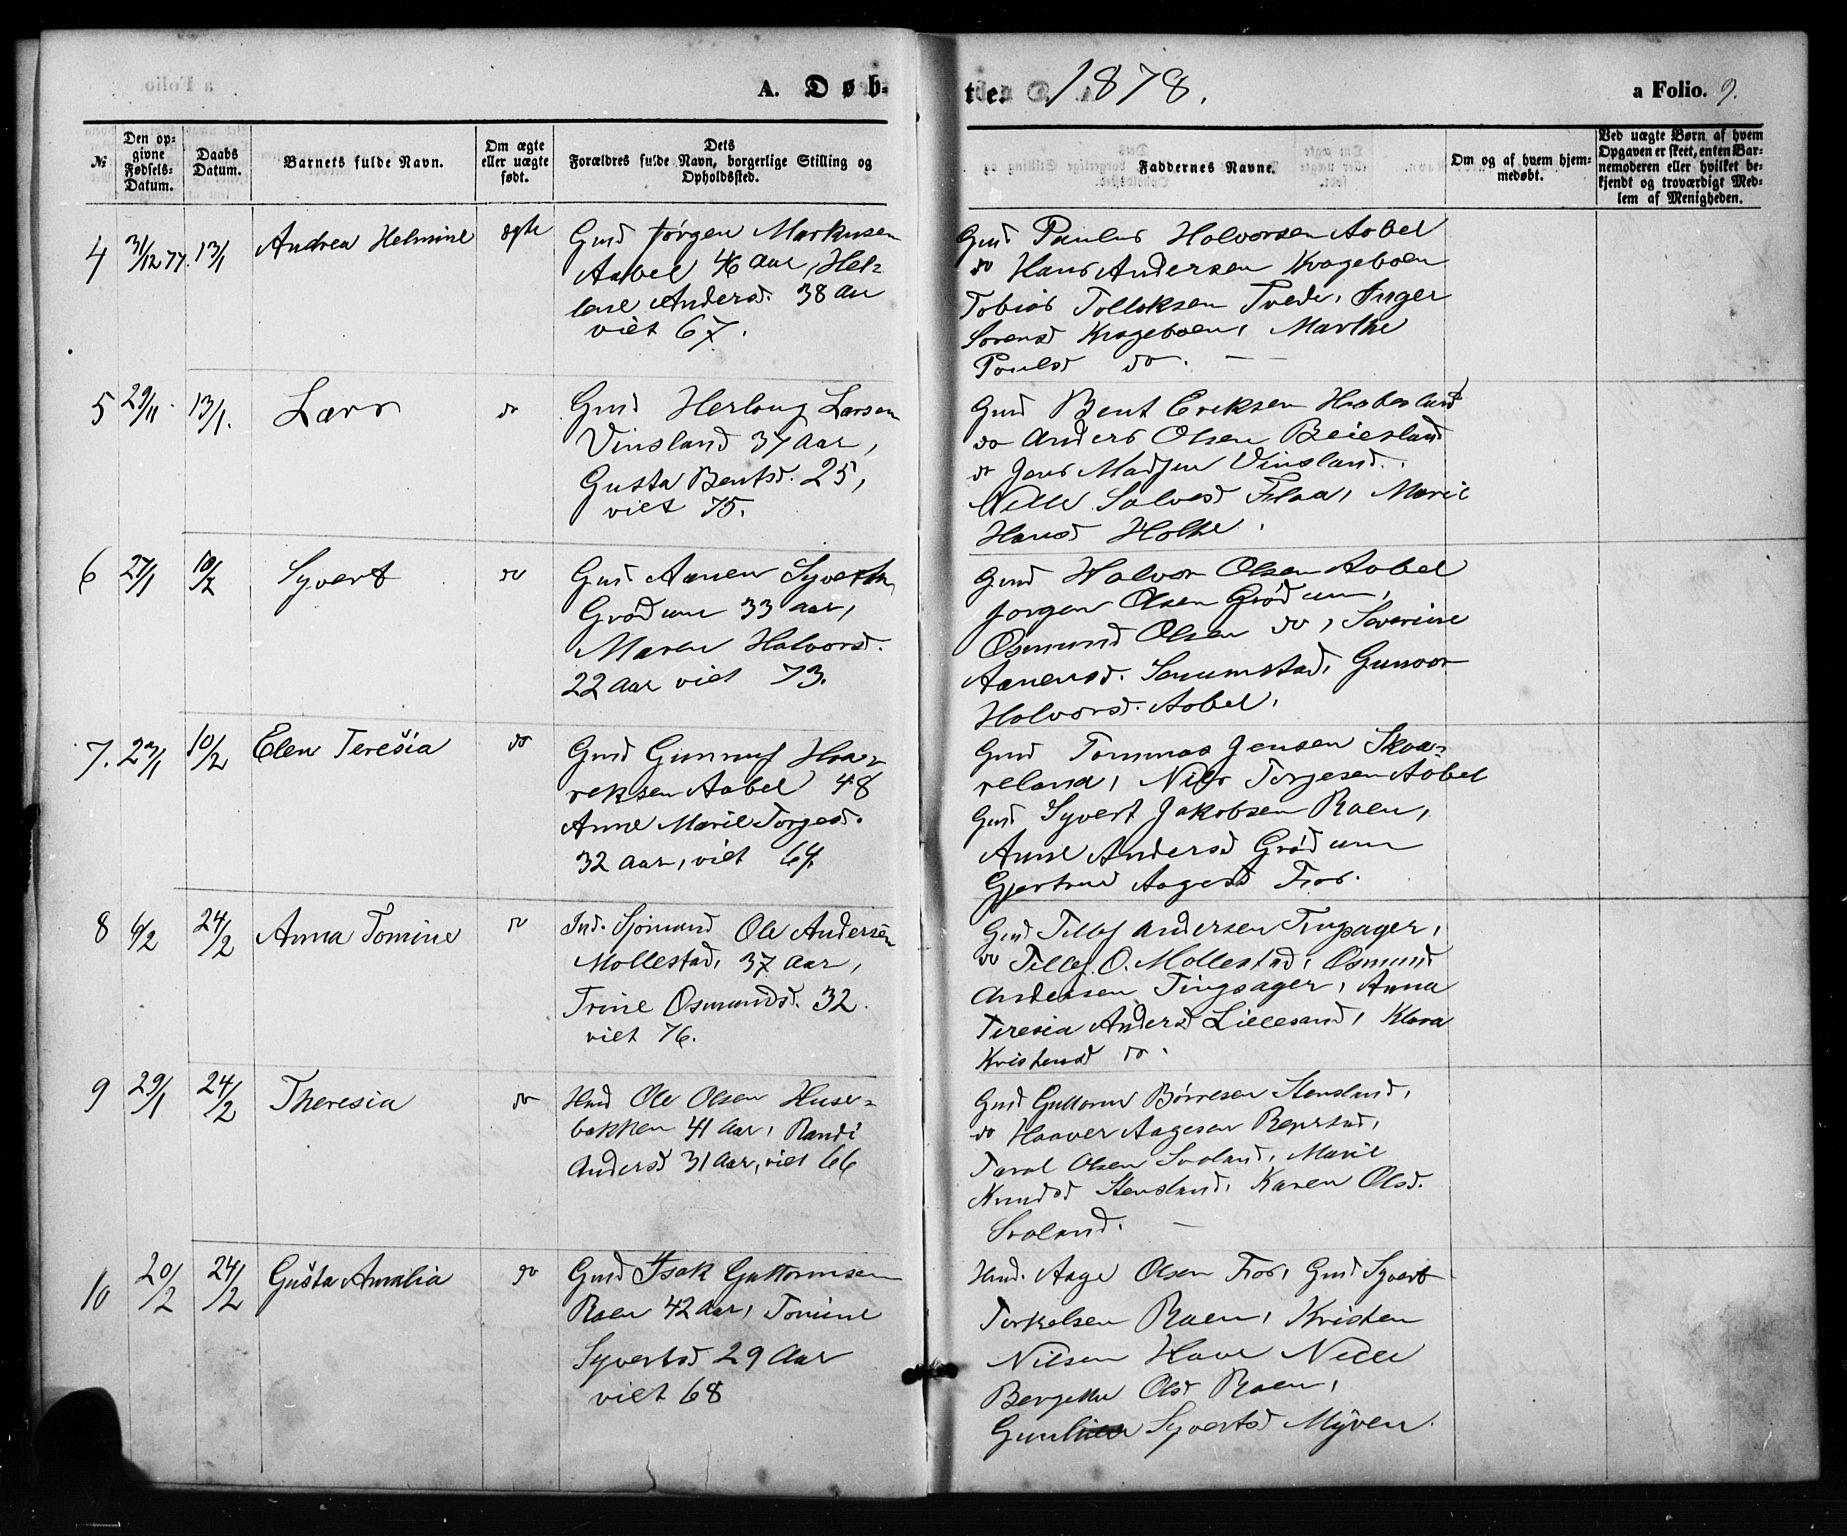 A. Døb-
te. 1878.
a Folio. 9.
№
Den op-
givne
Fødsels-
Datum.
Daabs
Datum.
Barnets fulde Navn.
Om ægte
eller uægte
født.
Dets
Forældres fulde Navn, borgerlige Stilling og
Opholdssted.
Faddernes Navne.
Om og af hvem hjem-
medøbt.
Ved uægte Børn af hvem
Opgaven er skeet, enten Bar-
nemoderen eller hvilket be-
kjendt og troværdigt Med-
lem af Menigheden.
4 31/12 77. 13/1 Andrea Helmine ægte
Gmd Jørgen Markusen
Aabel 46 Aar, Hel-
lene Andersd. 38 Aar
viet 67.
Gmd Paulus Halvorsen Aabel
do Hans Andersen Krageboen
Tobias Tellefsen Tvede, Inger
Sorensd Krageboen, Marthe
Paulsd do. —
5 29/11. 13/1. Lars do
Gmd Herlaug Larsen
Vinsland 37 Aar,
Gusta Bentsd. 25,
viet 75.
Gmd Bent Eriksen Haberland
do Anders Olsen Beiesland
do Jens Madsen Vinsland.
Nelle Salvesd Flaa, Marie
Hansd Holte.
6 27/1 10/2 Syvert do
Gmd Aanen Syverts.
Grødum 33 Aar,
Maren Halvorsd.
22 Aar viet 73.
Gmd Halvor Olsen Aabel
Jørgen Olsen Grødum,
Osmund Olsen do, Severine
Aanensd. Senumstad, Gunvor
Halvorsd. Aabel.
7. 22/1 10/2 Elen Teresia do
Gmd Gunnuf Haa-
reksen Aabel 48
Anne Marie Torgesd.
32 Aar, viet 64.
Gmd Tommas Jensen Skaa-
reland, Nils Torgesen Aabel
Gmd Syvert Jakobsen Raen,
Anne Andersd Grødum
Gjertrud Aagesd Fros.
8 6/2 24/2 Anna Tomine do
Ind. Sjømand Ole Andersen
Mollestad, 37 Aar,
Trine Osmundsd. 32.
viet 76.
Gmd Tellef Andersen Tingsager,
do Tellef O. Mollestad, Osmund
Andersen Tingsager, Anna
Teresia Andersd Lillesand, Klara
Kristensd do.
9 29/1 24/2 Theresia do
Hmd Ole Olsen Huse-
bakken 41 Aar, Randi
Andersd 31 Aar, viet 66
Gmd Guttorm Børresen Stensland,
do Haaver Aagesen Repstad,
Taral Olsen Svaland, Marie
Knudsd Stensland, Karen Olsd.
Svaland. —
10 20/2 24/2 Gusta Amalia do
Gmd Isak Guttormsen
Raen 42 Aar, Tomine
Syvertsd 29 Aar
viet 68
Hmd. Aage Olsen Fros, Gmd Syvert
Terkelsen Raen, Kristen
Nilsen Have Nelle
Bergitte Olsd Raen,
Syvertsd Myren.